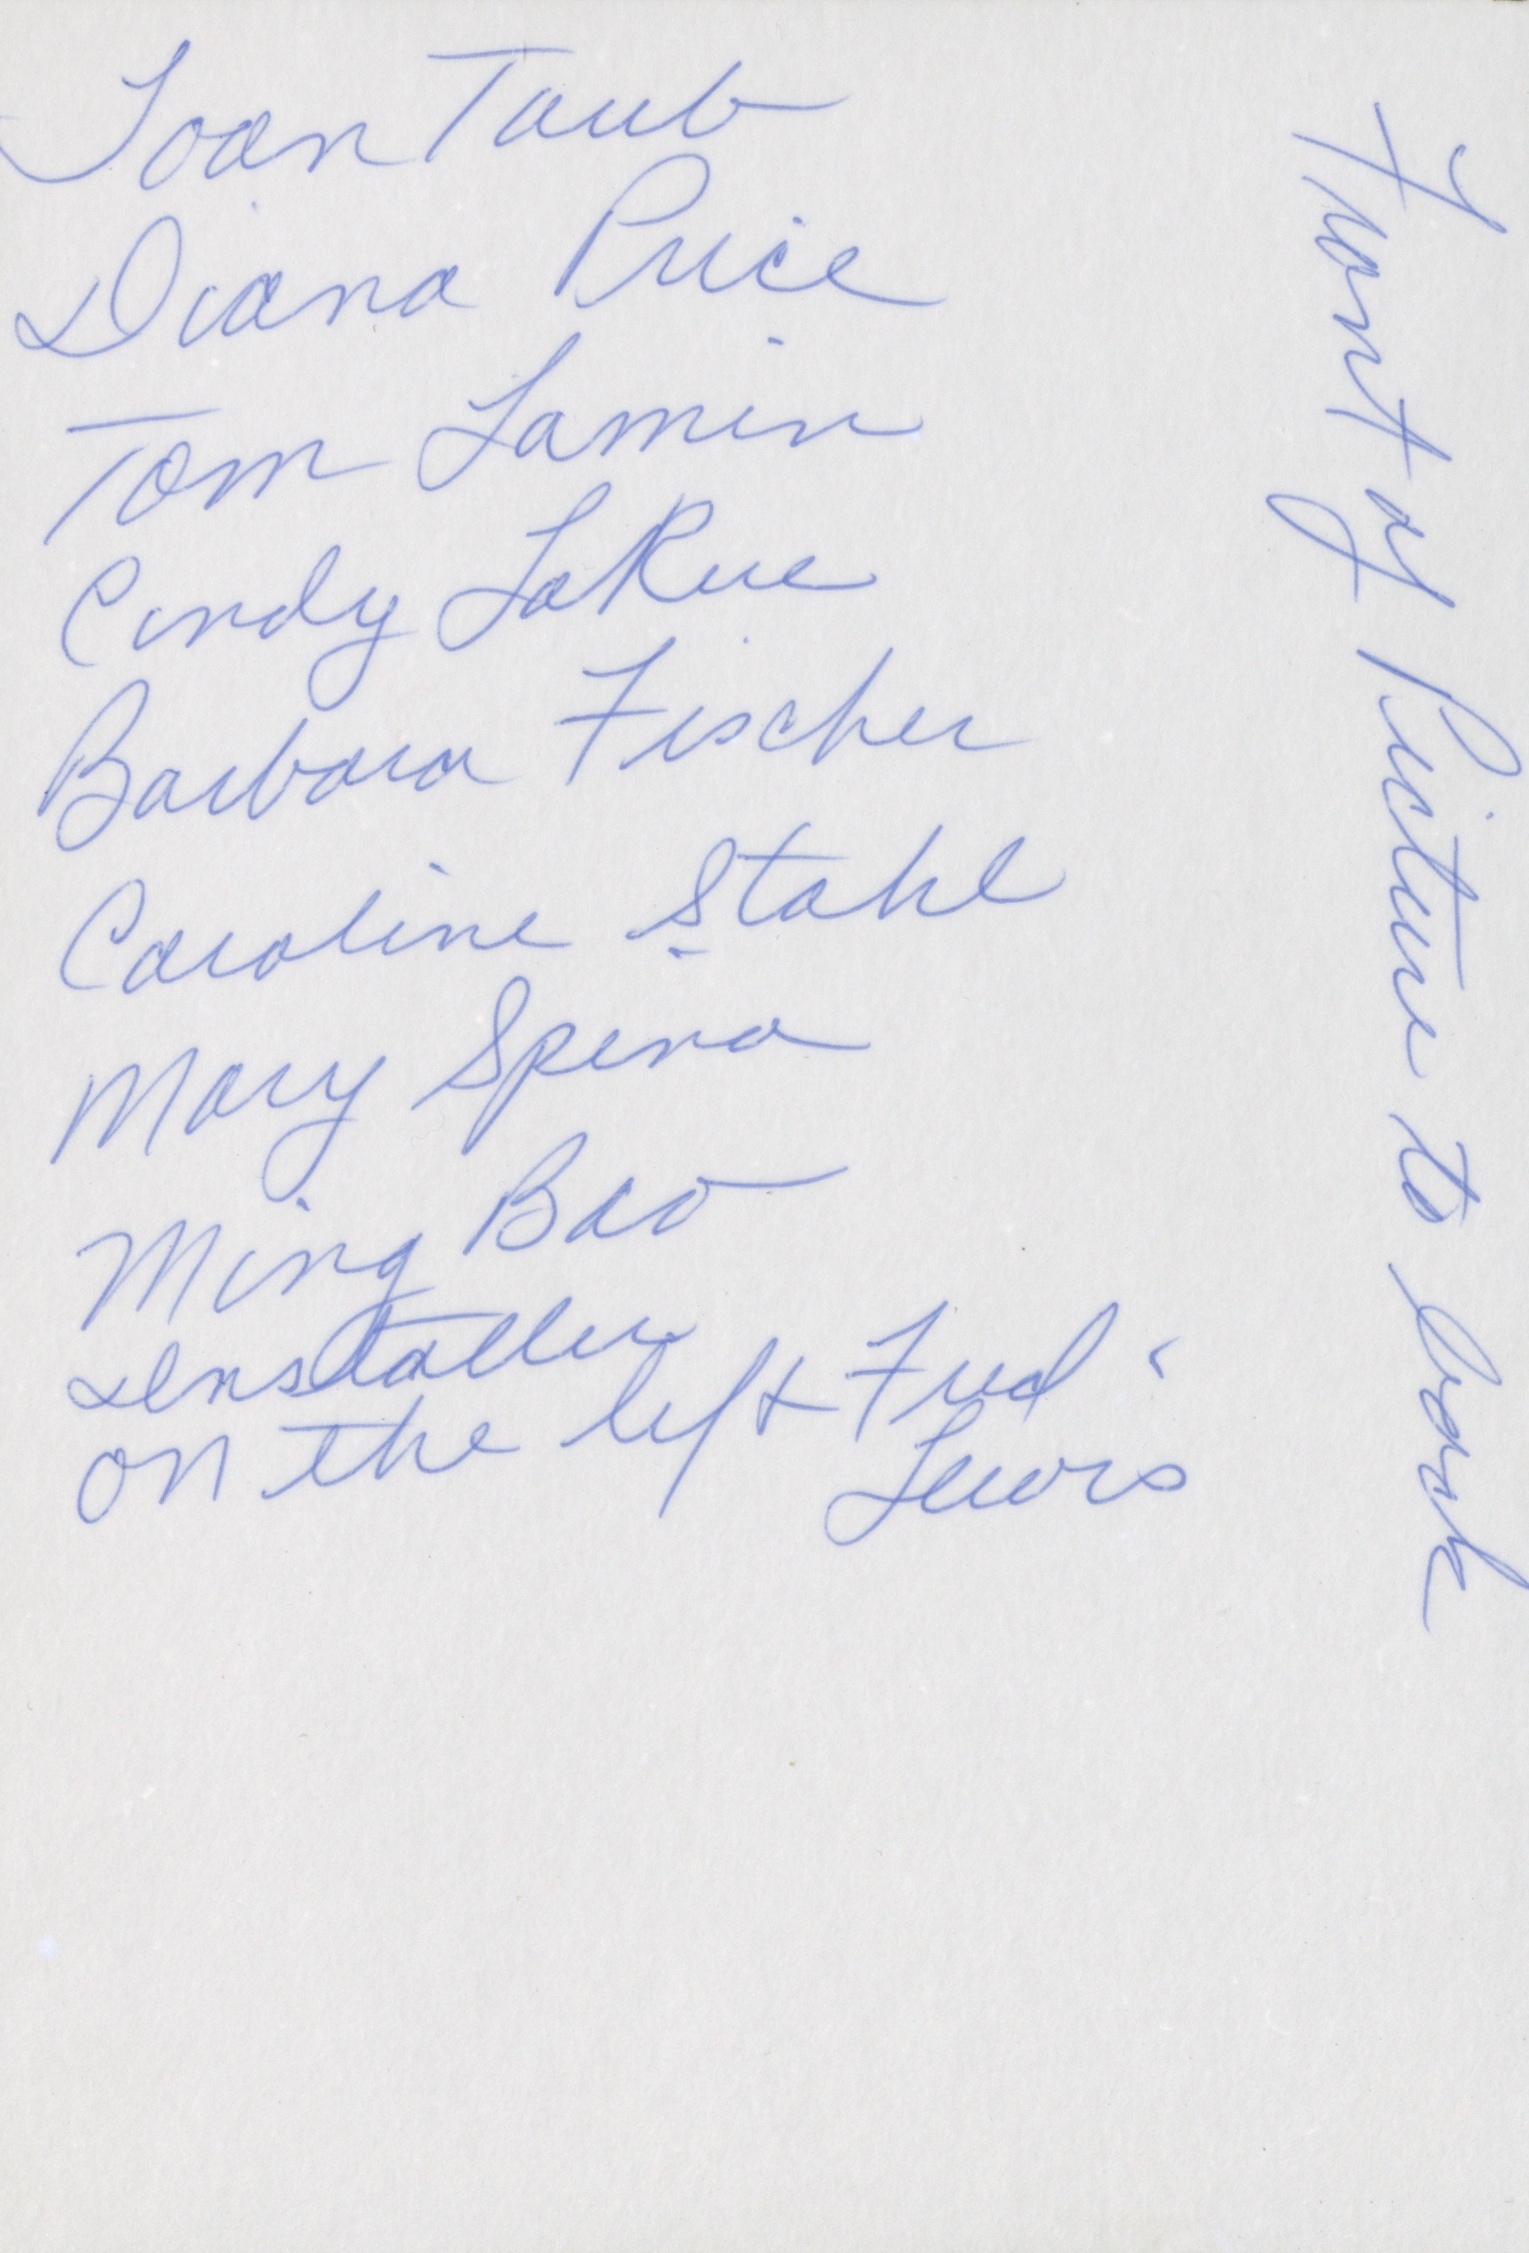 Joan Taub
Diana Price
Tom Lamin
Cindy LaRue
Barbara Fischer
Caroline Stahl
Mary Spena
Ming Bao
Installer
on the left Fred
Lewis
Front of Picture to back